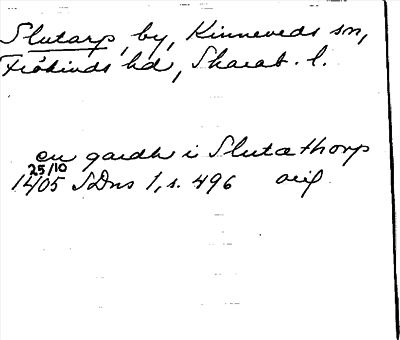 Slutarp, by, Kinneveds sn,
Frökinds hd, Skarab. l.
en gardh i Slutathorp
25/10
1405 SDns 1, s. 496 orig